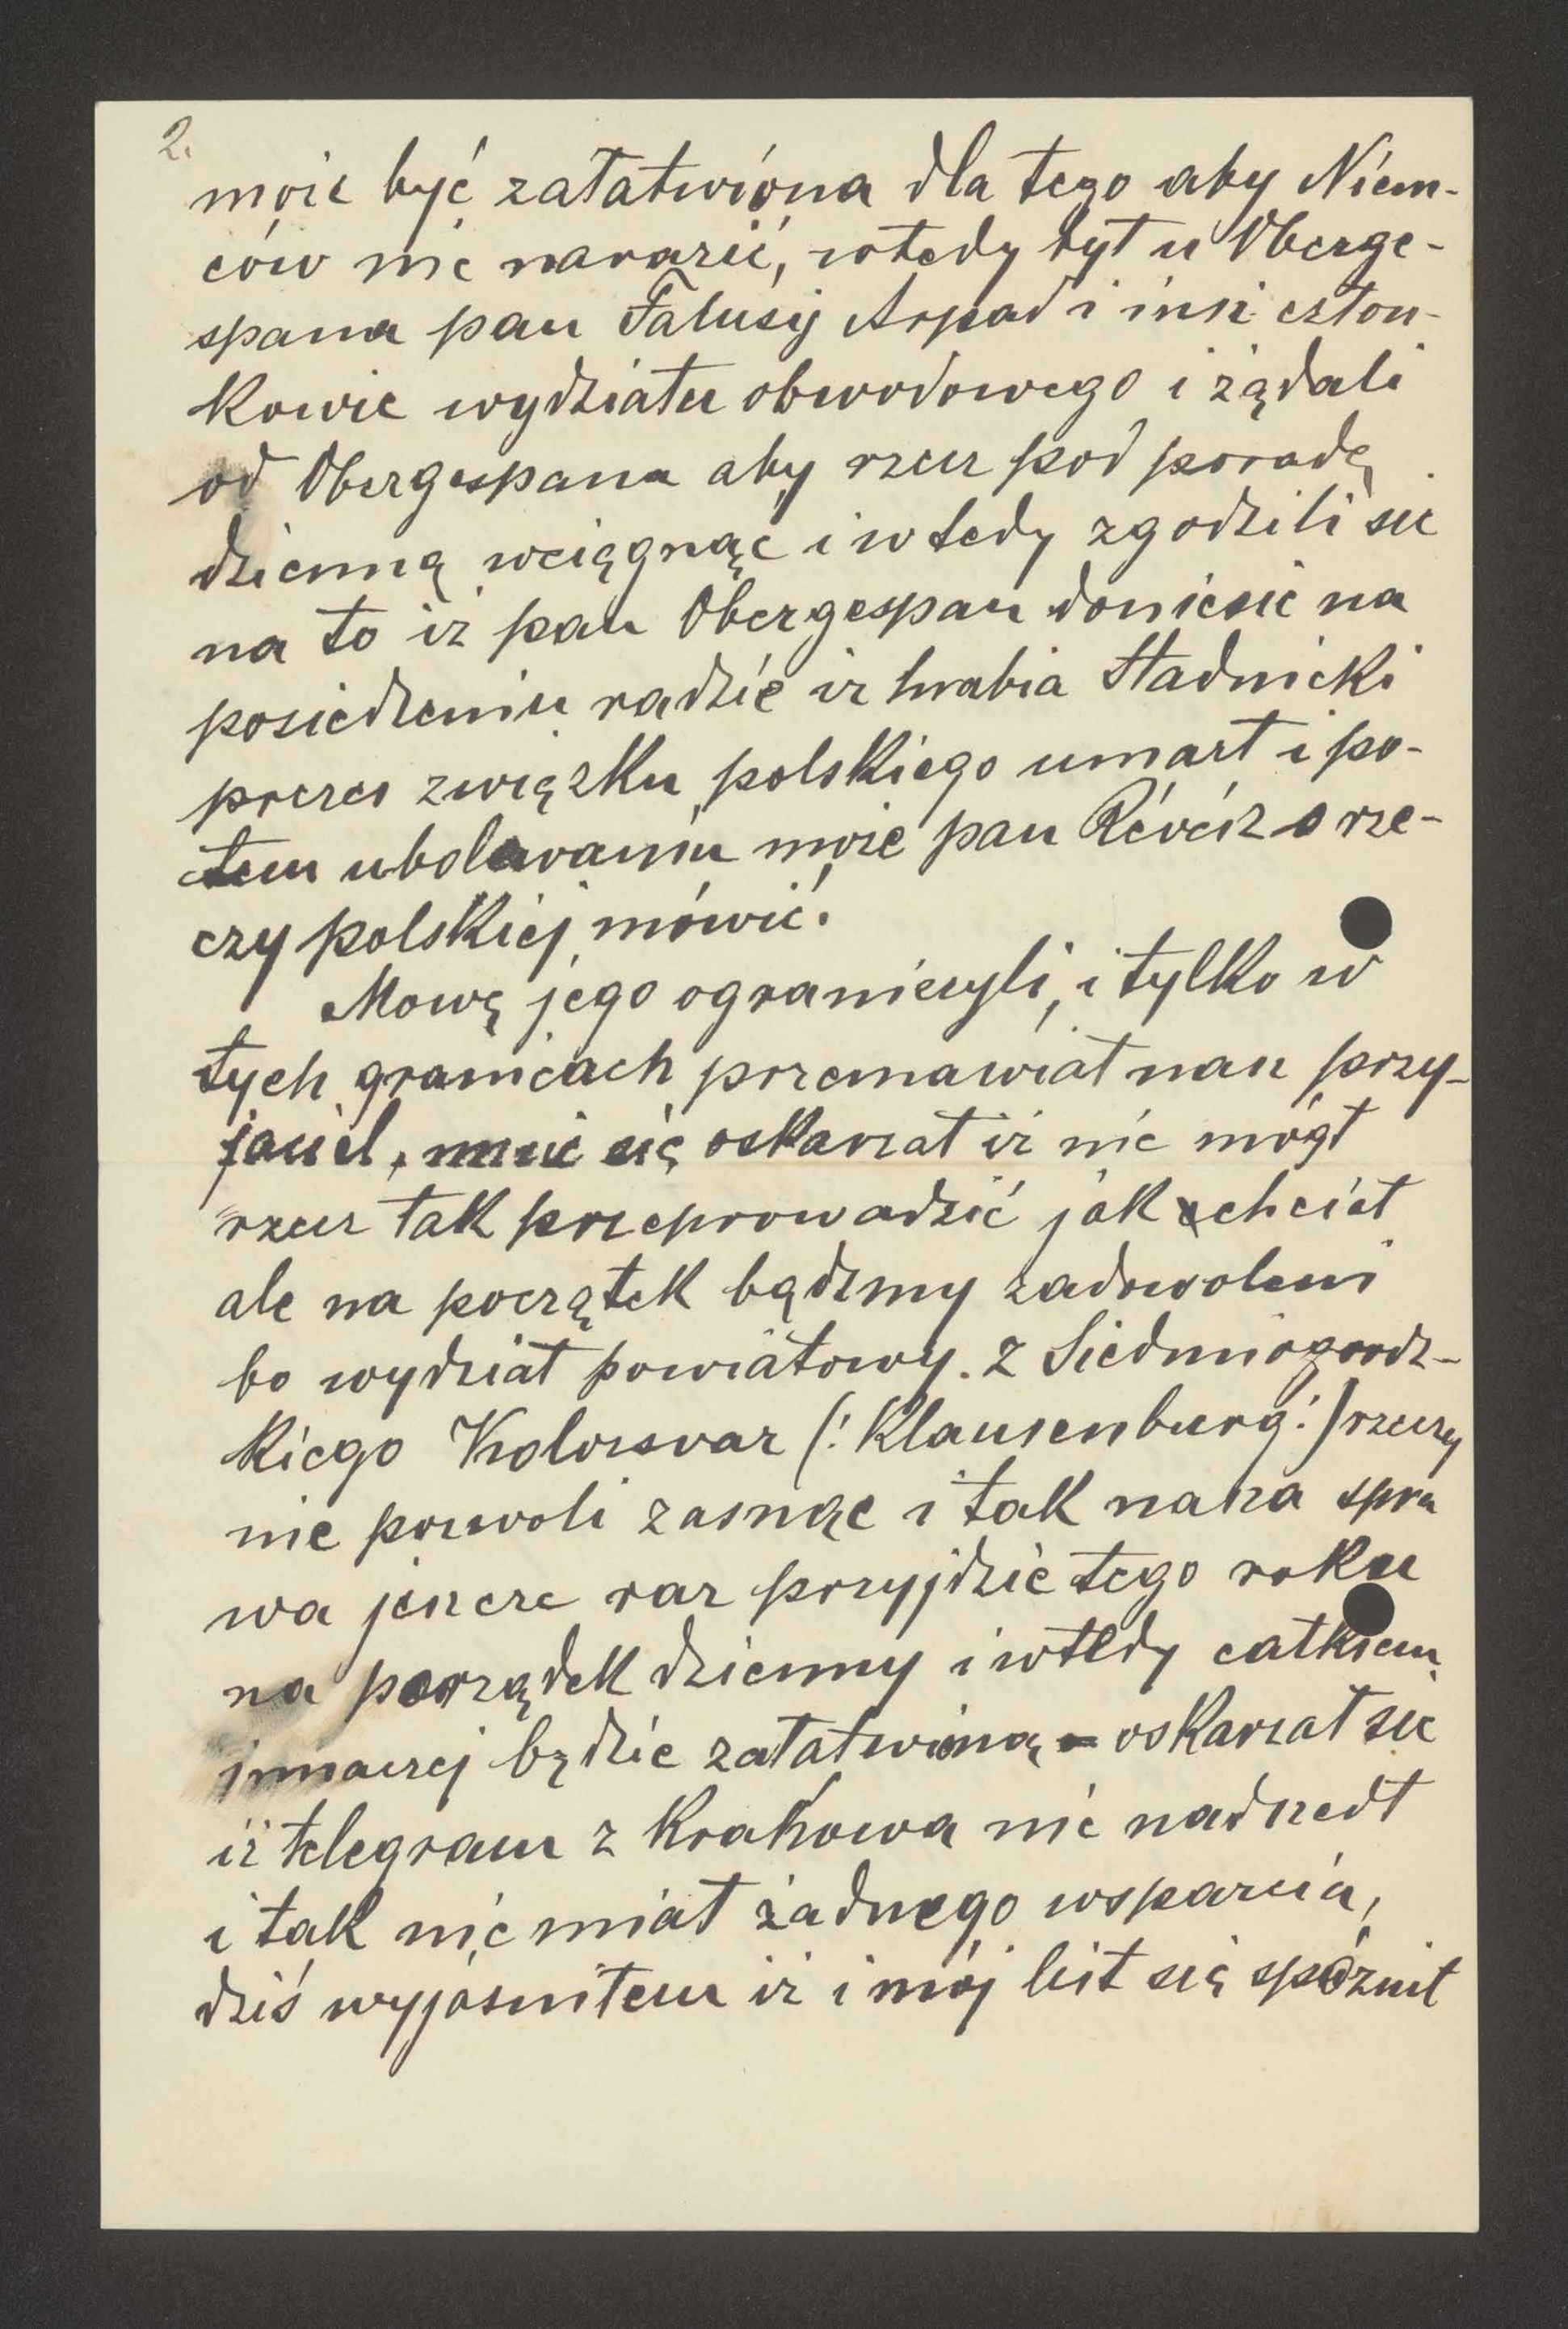 2.
może być załatwióna dla tego aby Niem-
ców nie narazić, wtedy był u Oberge-
spana pan Falusy Arpad i insi człon-
kowie wydziału obwodowego i żądali
od Obergespana aby rzecz pod poradę
dzienną wciągnąć i wtedy zgodzili sie
na to iż pan Obergespan doniesie na
posiedzeniu radzie iz hrabia Stadnicki
prezes związku polskiego umarł i po-
tem ubolewaniu może pan Révész o rze-
czy polskiej mówić.
Mowę jego ograniczyli, i tylko w
tych granicach przemawiał nasz przy-
jaciel, mnie się oskarżał iż nie mógł
rzecz tak przeprowadzić jak chciał
ale na początek bądźmy zadowoleni
bo wydział powiatowy. z Siedmiogrodz-
kiego Kolozsvar (: Klausenburg :) rzeczy
nie pozwoli zasnąć i tak nasza spra
wa jeszcze raz przyjdzie tego roku
na porządek dzienny i wtedy całkiem
innaczej będzie załatwioną - oskarżał sie
iż telegram z Krakowa nie nadszedł
i tak nie miał żadnego wsparcia,
dziś wyjaśniłem iż i mój list się spóźnił